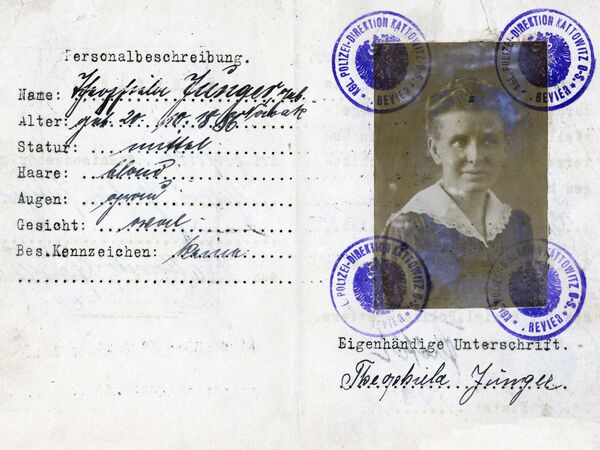 Personalbeschreibung.
Name: Theophiela Jünger geb.
Alter: geb. 20. 10. 18
Statur: mittel
Haare: blond
Augen: grau
Gesicht: oval
Bes.Kennzeichen: keine.
KGL. POLIZEI-DIREKTION KATTOWITZ O-S. * REVIER *
KGL. POLIZEI-DIREKTION KATTOWITZ O-S. * REVIER *
KGL. POLIZEI-DIREKTION KATTOWITZ O-S. * REVIER *
KGL. POLIZEI-DIREKTION KATTOWITZ O-S. * REVIER *
Eigenhändige Unterschrift.
Theophiela Jünger.